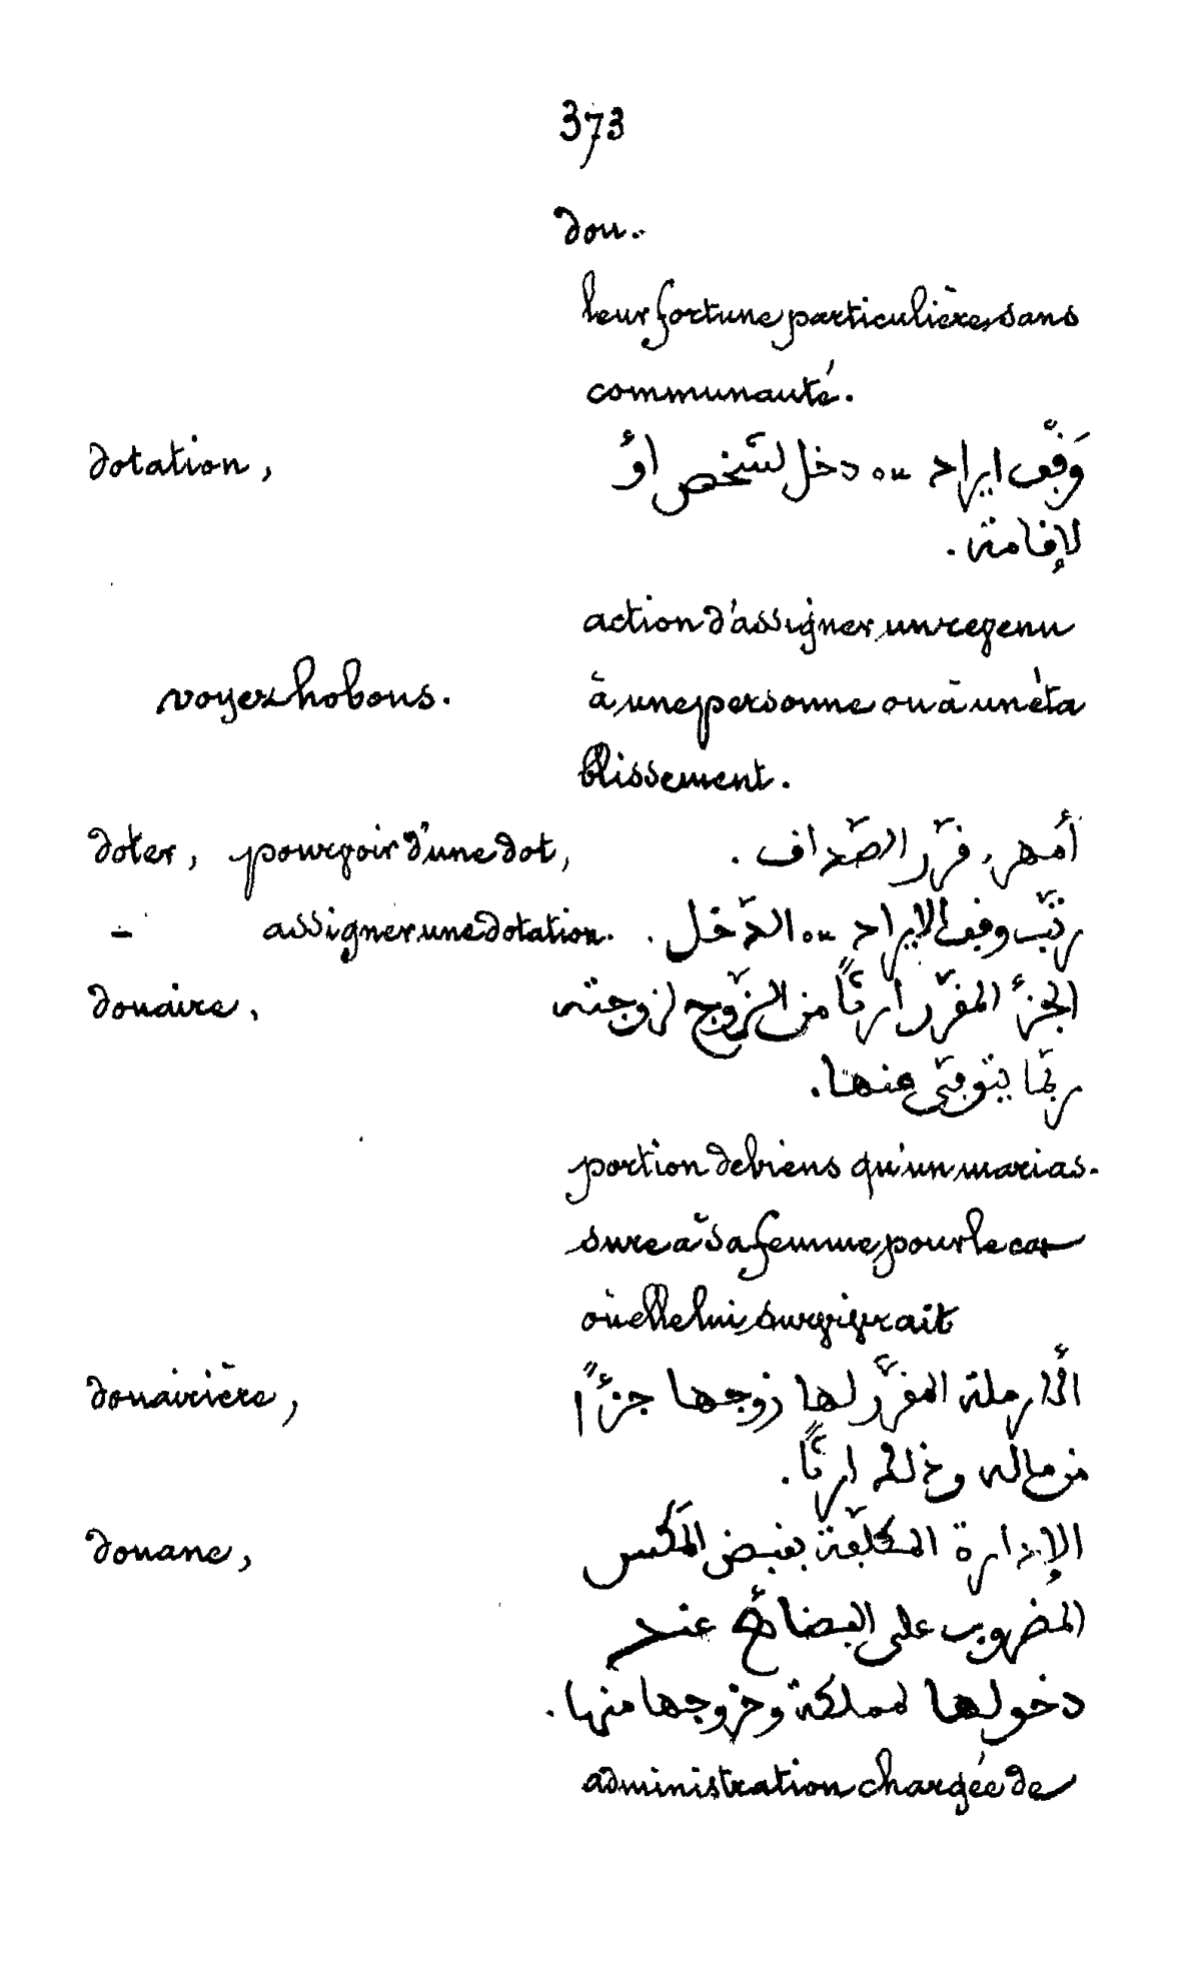 373
dou.
leur fortune particulière, sans
communauté.
dotation, وَقْف ايراد ou دخل لشخص أوْ
لإقامة.
action d'assigner un revenu
voyez hobous. à une personne ou à un éta
blissement.
doter, pourvoir d'une dot, أمهر، قرّر الصّداق.
- assigner une dotation. رتّب وقف الايراد ou الدّخل.
douaire, الجزء المقرّر ارثًا من الزّوج لزوجته
ربّما يتوفّى عنها.
portion de biens qu'un mari as-
sure à sa femme pour le cas
où elle lui survivrait
douairière, الأرملة المقرّر لها زوجها جزءًا
من ماله وذلك ارثًا.
douane, الإدارة المكلّفة بقبض المَكس
المضروب على البضائع عند
دخولها لمملكة وخروجها منها.
administration chargée de